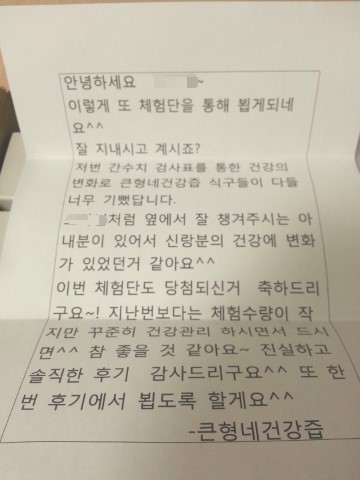 안녕하세요 ~
이렇게 또 체험단을 통해 뵙게되네
요^^
잘 지내시고 계시죠?
저번 간수치 검사표를 통한 건강의
변화로 큰형네건강즙 식구들이 다들
너무 기뻤답니다.
처럼 옆에서 잘 챙겨주시는 아
내분이 있어서 신랑분의 건강에 변화
가 있었던거 같아요^^
이번 체험단도 당첨되신거 축하드리
구요~! 지난번보다는 체험수량이 작
지만 꾸준히 건강관리 하시면서 드시
면^^ 참 좋을 것 같아요~ 진실하고
솔직한 후기 감사드리구요^^ 또 한
번 후기에서 뵙도록 할게요^^
-큰형네건강즙